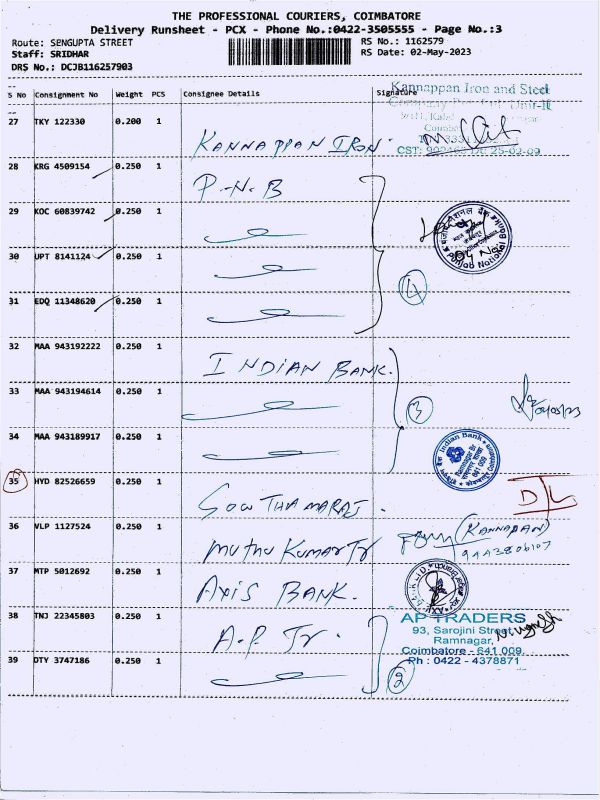 THE PROFESSIONAL COURIERS, COIMBATORE
Delivery Runsheet - PCX - Phone No.:0422-3505555 - Page No.:3
Route: SENGUPTA STREET
RS No.: 1162579
Staff: SRIDHAR
RS Date: 02-May-2023
DRS No.: DCJB116257903
S No Consignment No Weight PCS Consignee Details Signature
Kannappan Iron and Steel
27 TKY 122330 0.200 1 KANNAPPAN IRON.
CST:
28 KRG 4509154 0.250 1 P.N.B
29 KOC 60839742 0.250 1
Punjab National Bank
30 UPT 8141124 0.250 1
4
31 EDQ 11348620 0.250 1
32 MAA 943192222 0.250 1 INDIAN BANK.
33 MAA 943194614 0.250 1
3
34 MAA 943189917 0.250 1
Indian Bank
Ramnagar Br
641 009
35 HYD 82526659 0.250 1 SOW THAMARAI.
DJL
36 VLP 1127524 0.250 1 Muthu Kumar Tr (KANNAPAN)
9443806107
37 MTP 5012692 0.250 1 AXIS BANK.
38 TNJ 22345803 0.250 1 A.P. Tr.
AP TRADERS
93, Sarojini Street,
Ramnagar,
Coimbatore - 641 009.
Ph : 0422 - 4378871
39 DTY 3747186 0.250 1
2